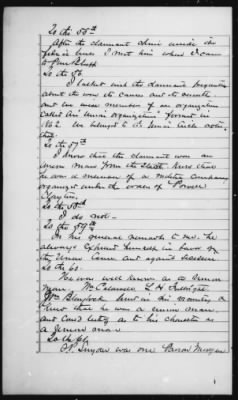 To the 55th
After the claimant came inside the
federal lines I met him when I came
to Pine Bluff
To the 56
I talked with the claimant frequently
about the war its causes and its results
and we were members of an organization
called the Union organization formed in
We belonged to the Union
To the 57th
I know that the claimant was an
Union man from the start. Knew that
he was a member of a militia company
organized under the orders of Powell
Clayton.
To the 58th
I do not -
To the 59th
In his general remarks to me. He
always expressed himself in favor of
the Union Cause and against secession
To the 60.
He was well known as a Union
man. L. H.
Wm Blaylock lived in this country &
knew that he was a union man
and could testify as to his character as
a Union man
To the 61.
O. P. Snyder was one